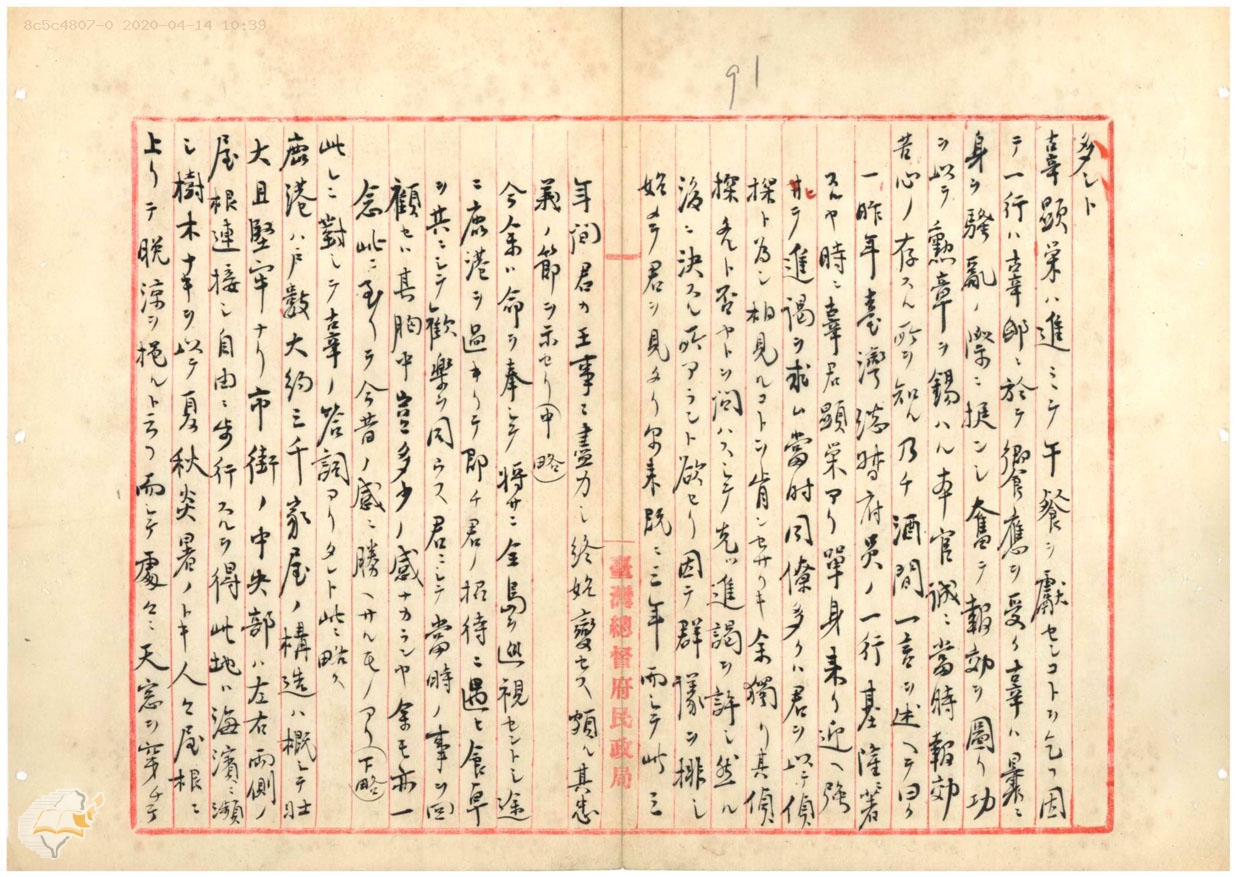 8c5c4807-0 2020-04-14 10:39
91
多シト
辜顯榮ハ進ミテ午餐ヲ獻センコトヲ乞フ因
テ一行ハ辜邸ニ於テ饗應ヲ受ク辜ハ曩ニ
身ヲ騷亂ノ際ニ挺ンシ奮テ報効ヲ圖リ功
ヲ以テ勳章ヲ錫ハル本官誠ニ當時報効
苦心ノ存スル所ヲ知ル乃チ酒間一言ヲ述ヘテ曰ク
一昨年臺灣總督府員ノ一行基隆ニ著
スルヤ時ニ辜君顯榮アリ單身來リ迎ヘ強
ヒテ進謁ヲ求ム當時同僚多クハ君ヲ以テ偵
探ト為シ相見ルコトヲ肯ンセサリキ余獨リ其偵
探タルト否ヤトヲ問ハスシテ先ツ進謁ヲ許シ然ル
後ニ決スル所アラント欲セリ因テ群議ヲ排シ
始メテ君ヲ見タリ尓来既ニ三年而シテ此三
臺灣總督府民政局
年間君カ王事ニ盡力シ終始變セス頗ル其忠
義ノ節ヲ示セリ(中略)
今余ハ命ヲ奉シテ將サニ全島ヲ巡視セントシ途
ニ鹿港ヲ過キリテ即チ君ノ招待ニ遇ヒ食卓
ヲ共ニシテ歡樂ヲ同ウス君ニシテ當時ノ事ヲ回
顧セハ其胸中豈多少ノ感ナカランヤ余モ亦一
念此ニ至リテ今昔ノ感ニ勝ヘサルモノアリ(下略)
此レニ對シテ辜ノ答詞アリタレト此ニ略ス
鹿港ハ戸數大約三千家屋ノ構造ハ概シテ壮
大且堅牢ナリ市街ノ中央部ハ左右兩側ノ
屋根連接シ自由ニ歩行スルヲ得此地ハ海濱ニ瀕
シ樹木ナキヲ以テ夏秋炎暑ノトキ人々屋根ニ
上リテ晩涼ヲ挹ルト云フ而シテ處々ニ天窓ヲ穿チテ